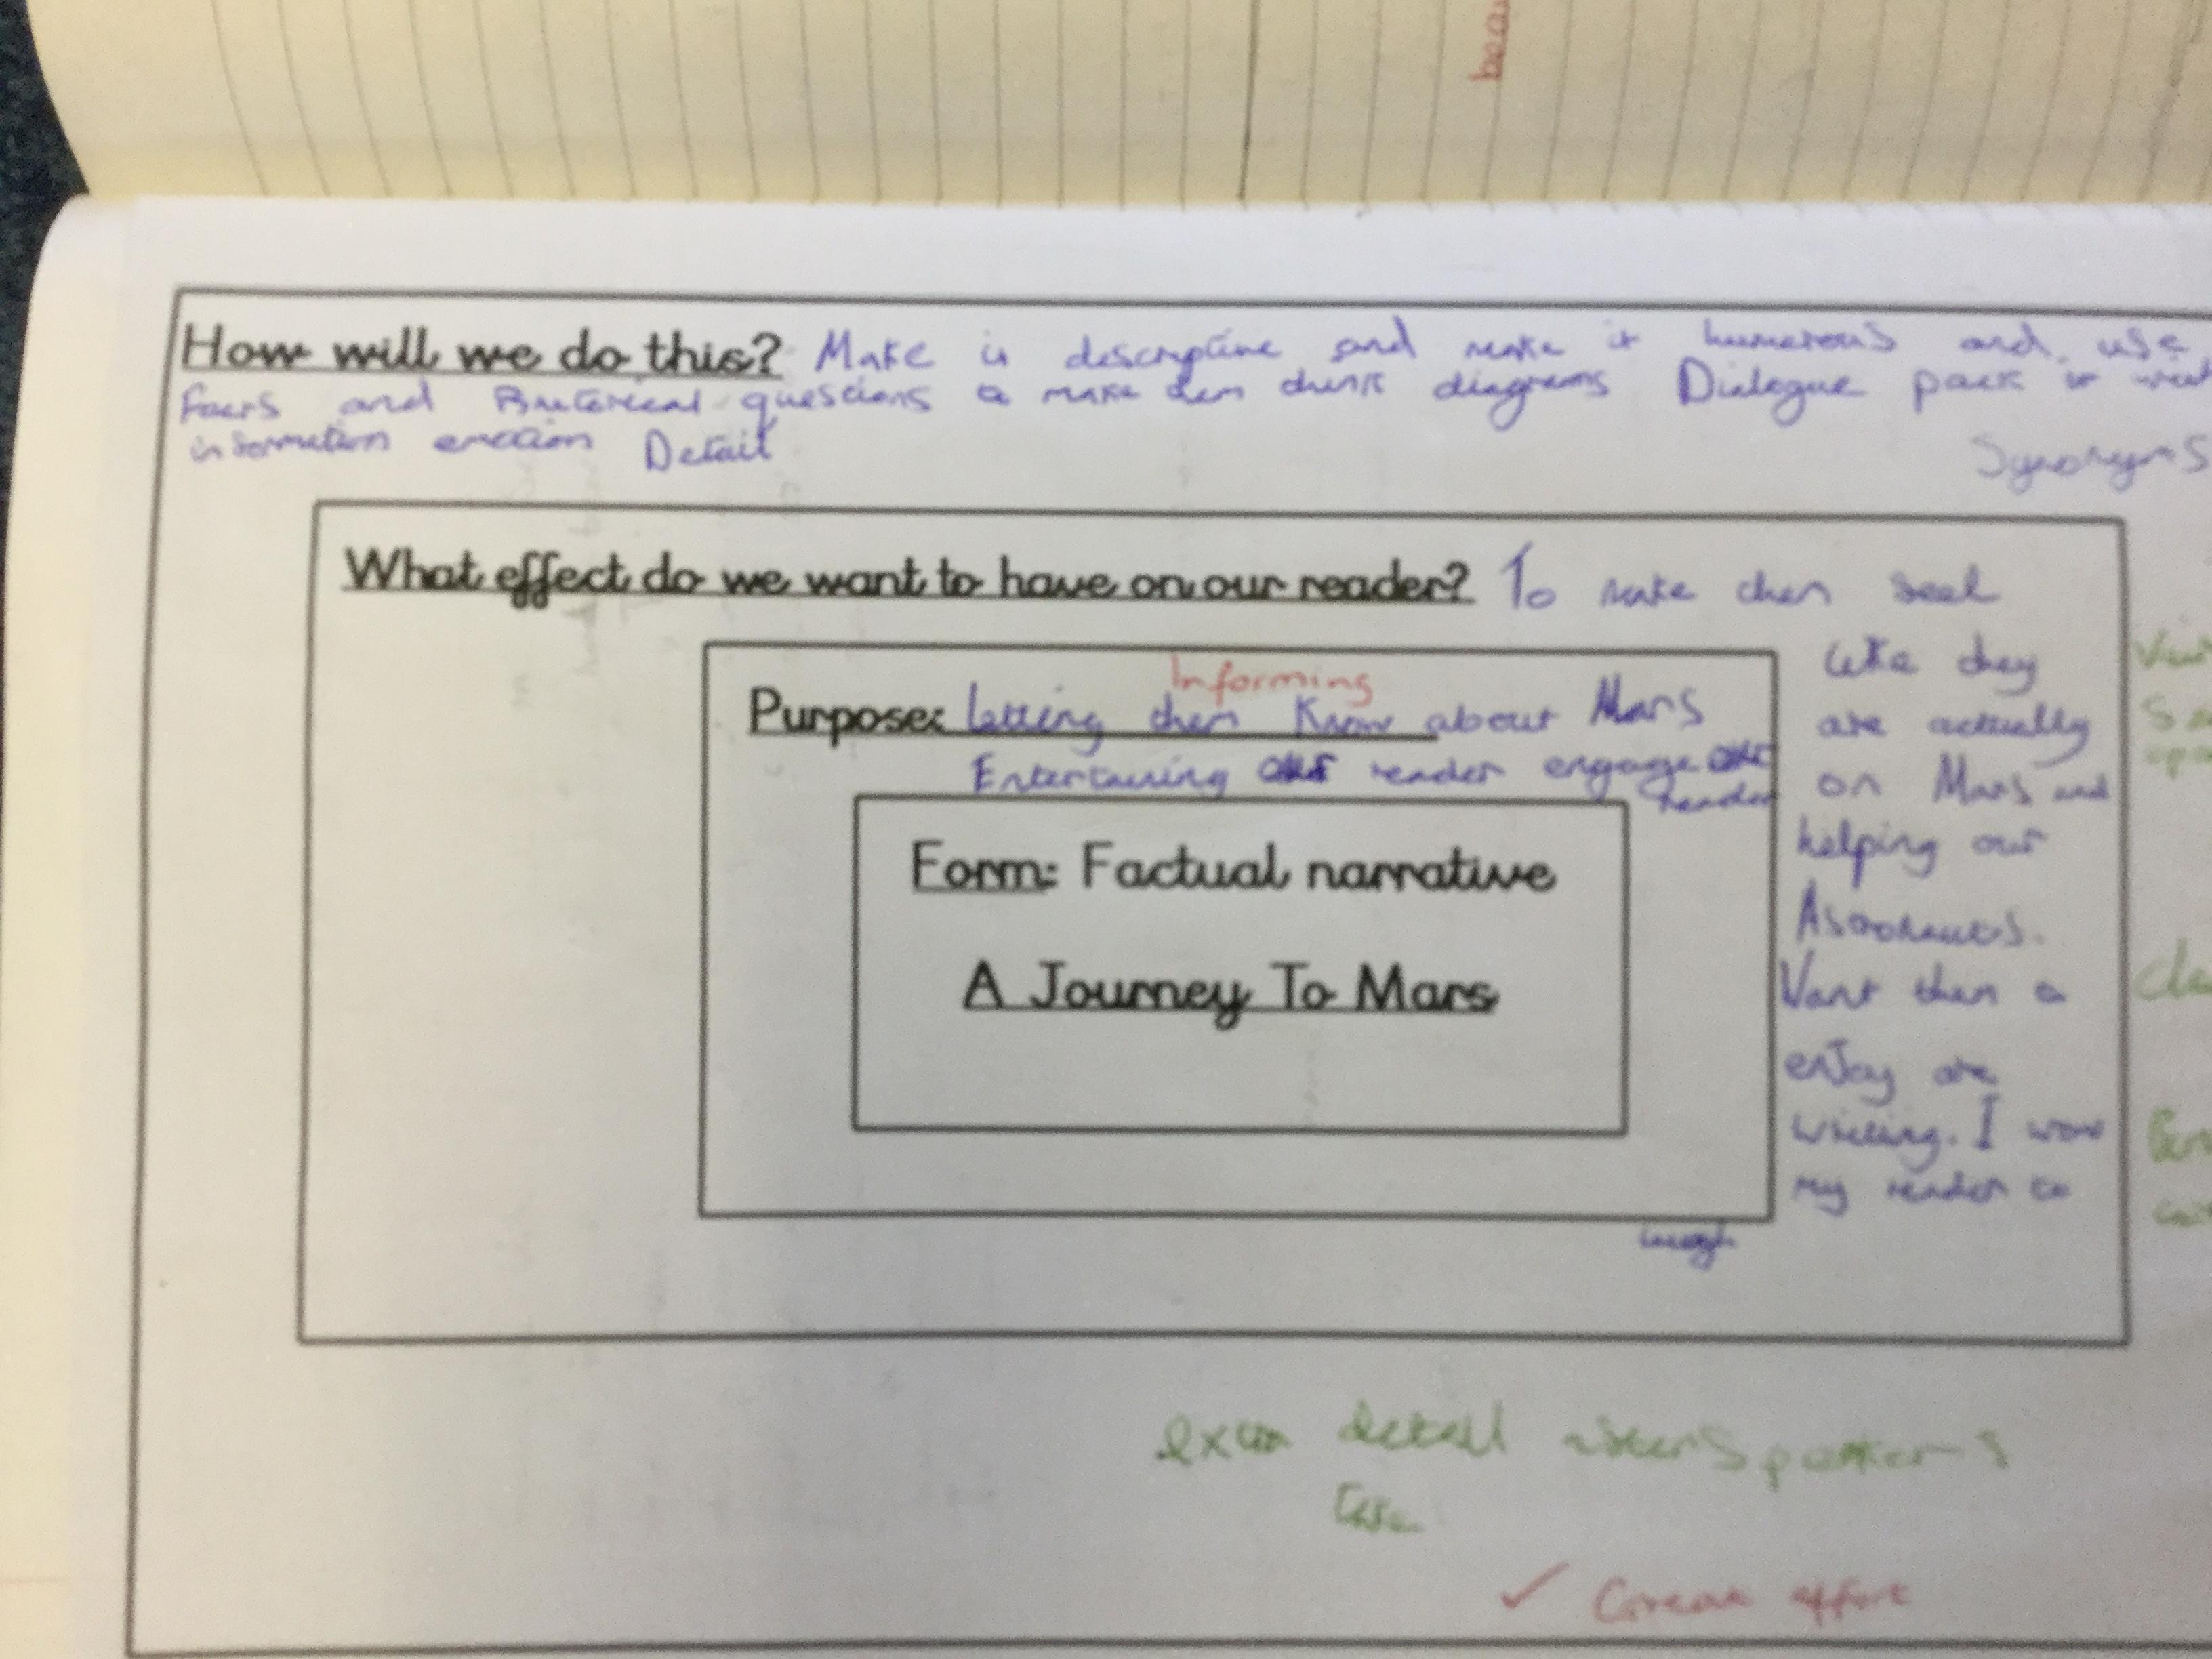 How will we do this? Make it descriptive and make it humerous and use
facts and Rhetorical questions to make them think diagrams Dialogue pack it
information emotion Detail
Synonyms
What effect do we want to have on our reader? To make them feel
like they
are actually
on Mars and
helping our
Astronauts.
Want them to
enJoy are
writing. I want
my reader to
laugh
Informing
Purpose: letting them Know about Mars
Entertaining our reader engage our
reader
Form: Factual narrative
A Journey To Mars
extra detail
✓ Great effort